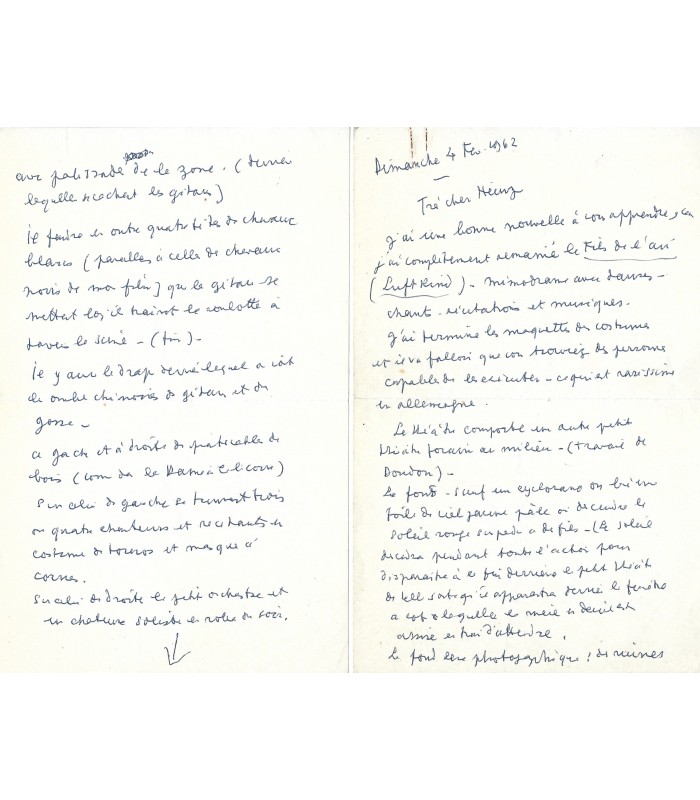 Dimanche 4 Fev. 1962
Très cher Heinz
J'ai une bonne nouvelle à vous apprendre,
j'ai complètement remanié le Fils de l'air
(Luftkind) - mimodrame avec danses -
chant - récitations et musiques.
J'ai terminé les maquettes des costumes
et il va falloir que vous trouviez des personnes
capables de les exécuter - ce qui est rarissime
en allemagne.
Le théâtre comporte un autre petit
théâtre forain au milieu - (travail de
Doudou) -
Le fond - sauf un cyclorama ou bien une
toile de ciel jaune pâle où descendra le
soleil rouge suspendu à des fils - (le soleil
descendra pendant toute l'action pour
disparaître à la fin derrière le petit théâtre
de telle sorte qu'il apparaîtra derrière la fenêtre
à côté de laquelle la mère en deuil est
assise en train d'attendre.
Le fond sera photographique : de ruines
avec palissade de la zone. (derrière
laquelle se cachent les gitans)
Il faudra en outre quatre têtes de chevaux
blancs (pareilles à celles de chevaux
noirs de mon film) que les gitans se
mettent lorsqu'ils traînent la roulotte à
travers la scène - (fin) -
Il y aura le drap derrière lequel a lieu
les ombres chinoises du gitan et du
gosse -
à gauche et à droite des praticables de
bois (comme dans la Dame à la licorne)
Sur celui de gauche se trouvent trois
ou quatre chanteurs et récitants en
costume de toreros et masque à
cornes.
Sur celui de droite le petit orchestre et
une chanteuse soliste en robe du soir.